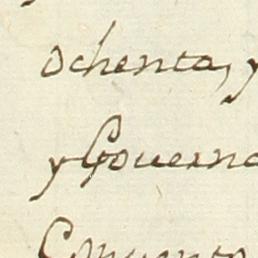 ochenta, y
y Gouerna